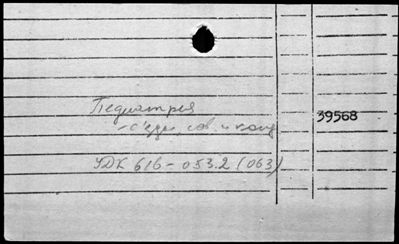 Педиатрия
- съезды, сов. и конф.
39568
УДК 616-053.2 (063)